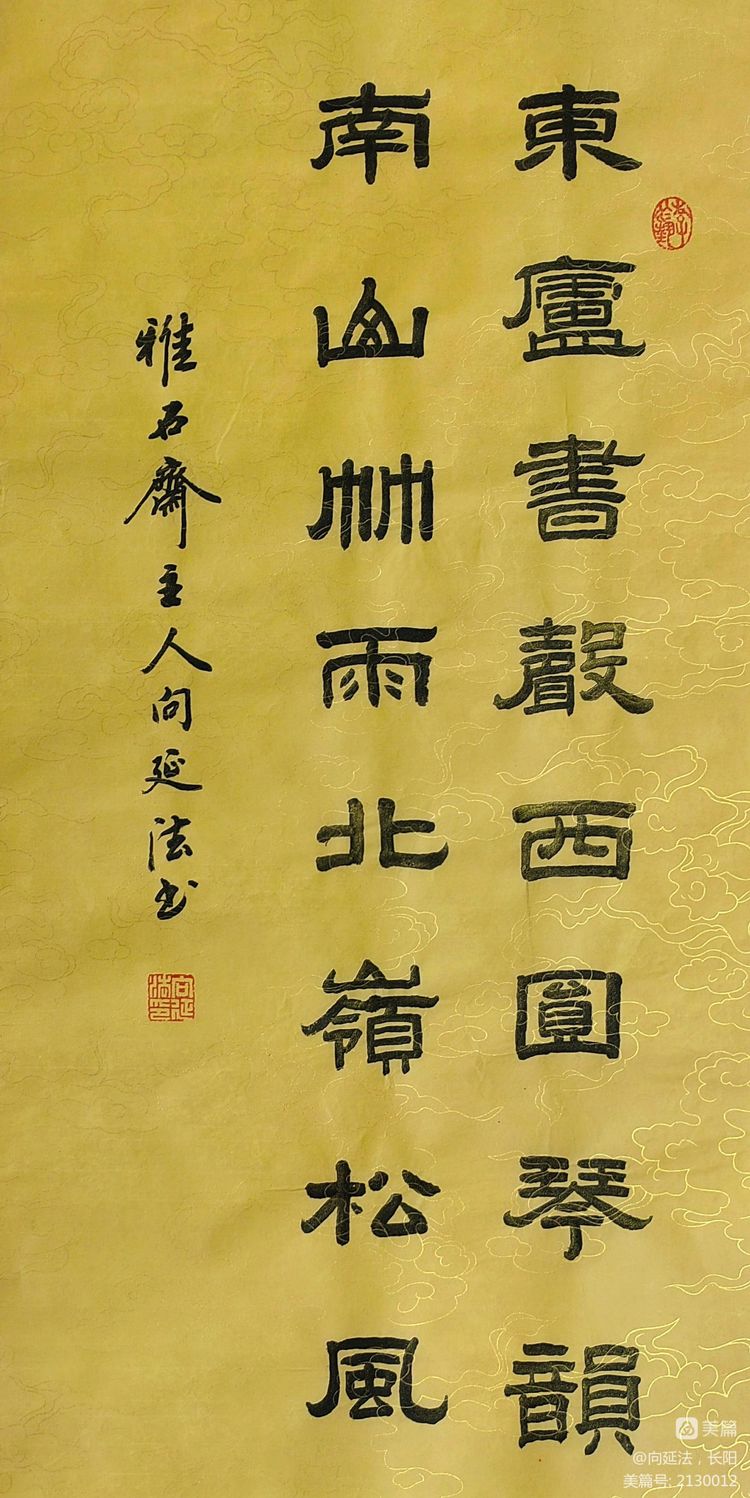 東廬書聲西圓琴韻
南山竹雨北嶺松風
雅石齋主人向延法书
向延法印
美篇
@向延法，长阳
美篇号: 2130012